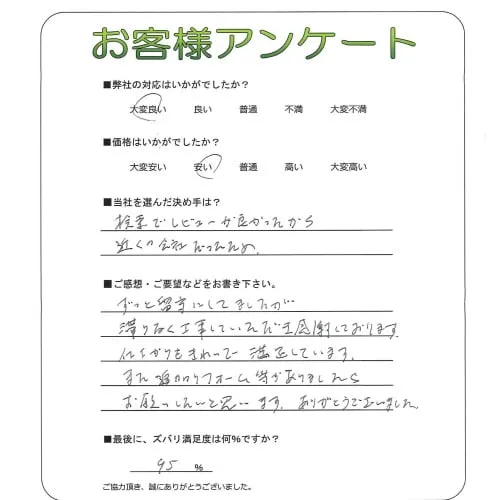 お客様アンケート
■弊社の対応はいかがでしたか？
大変良い 良い 普通 不満 大変不満
■価格はいかがでしたか？
大変安い 安い 普通 高い 大変高い
■当社を選んだ決め手は？
検索でレビューが良かったから
近くの会社だったため。
■ご感想・ご要望などをお書き下さい。
ずっと留守にしてましたが
滞りなく工事していただき感謝しております
仕上がりもきれいで 満足しています。
また追加リフォーム等がありましたら
お願いしたいと思います。ありがとうございました。
■最後に、ズバリ満足度は何％ですか？
95 ％
ご協力頂き、誠にありがとうございました。